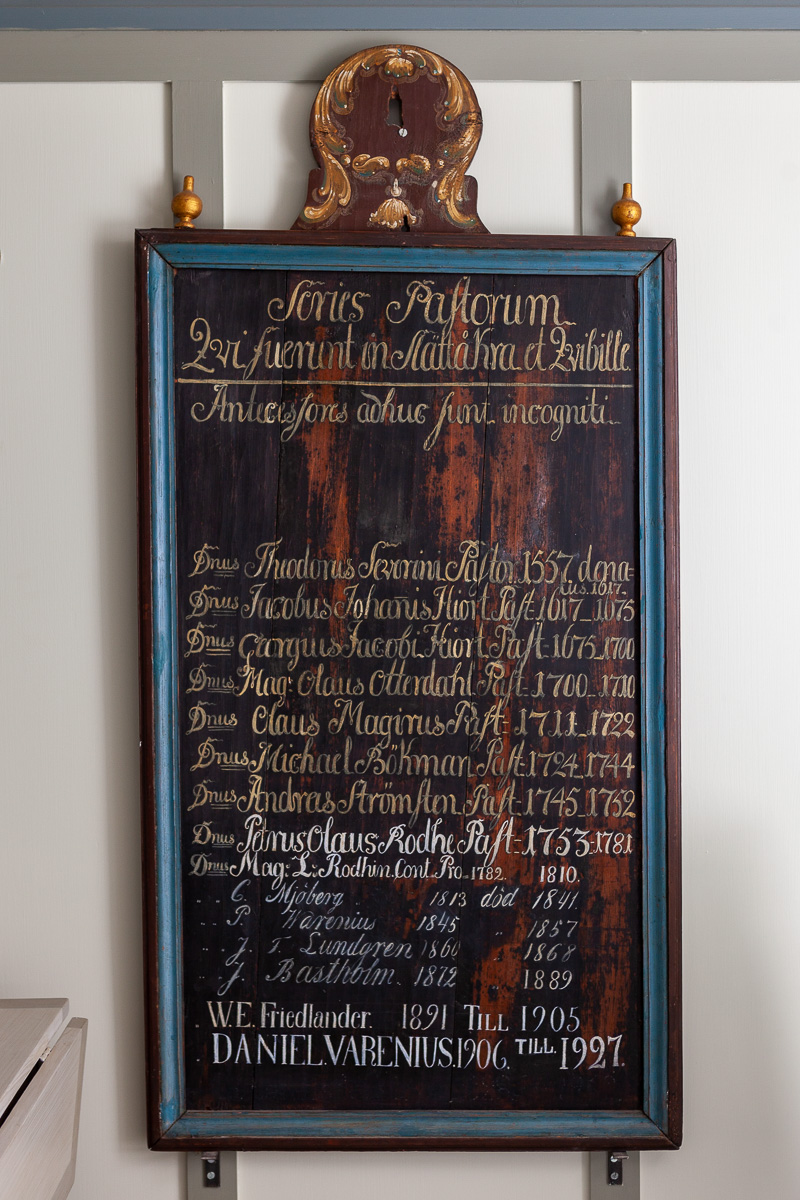 Series Pastorum
Qvi fuerunt in Slättåkra et Qvibille.
Antecessores adhuc sunt incogniti.
Dnus Theodorus Severini Pastor 1557 dena=
tus. 1617.
Dnus Jacobus Johan̄is Hiort Past. 1617_1675
Dnus Gargius Jacobi Hiort Past. 1675_1700
Dnus Mag: Olaus Otterdahl Past= 1700_1710
Dnus Olaus Magirus Past= 1711_1722
Dnus Michael Bökman Past= 1724_1744
Dnus Andreas Strömsten Past= 1745_1752
Dnus Petrus Olaus Rodhe Past= 1753-1781
Dnus Mag: L: Rodhin. Cont. Pro 1782. 1810.
" " C. Mjöberg. 1813 död 1841.
" " P. Warenius 1845 " 1857
" " J. T. Lundgren 1860 " 1868
" " J. Bastholm. 1872 1889
" W. E. Friedlander. 1891 TILL 1905
" DANIEL. VARENIUS. 1906. TILL. 1927.